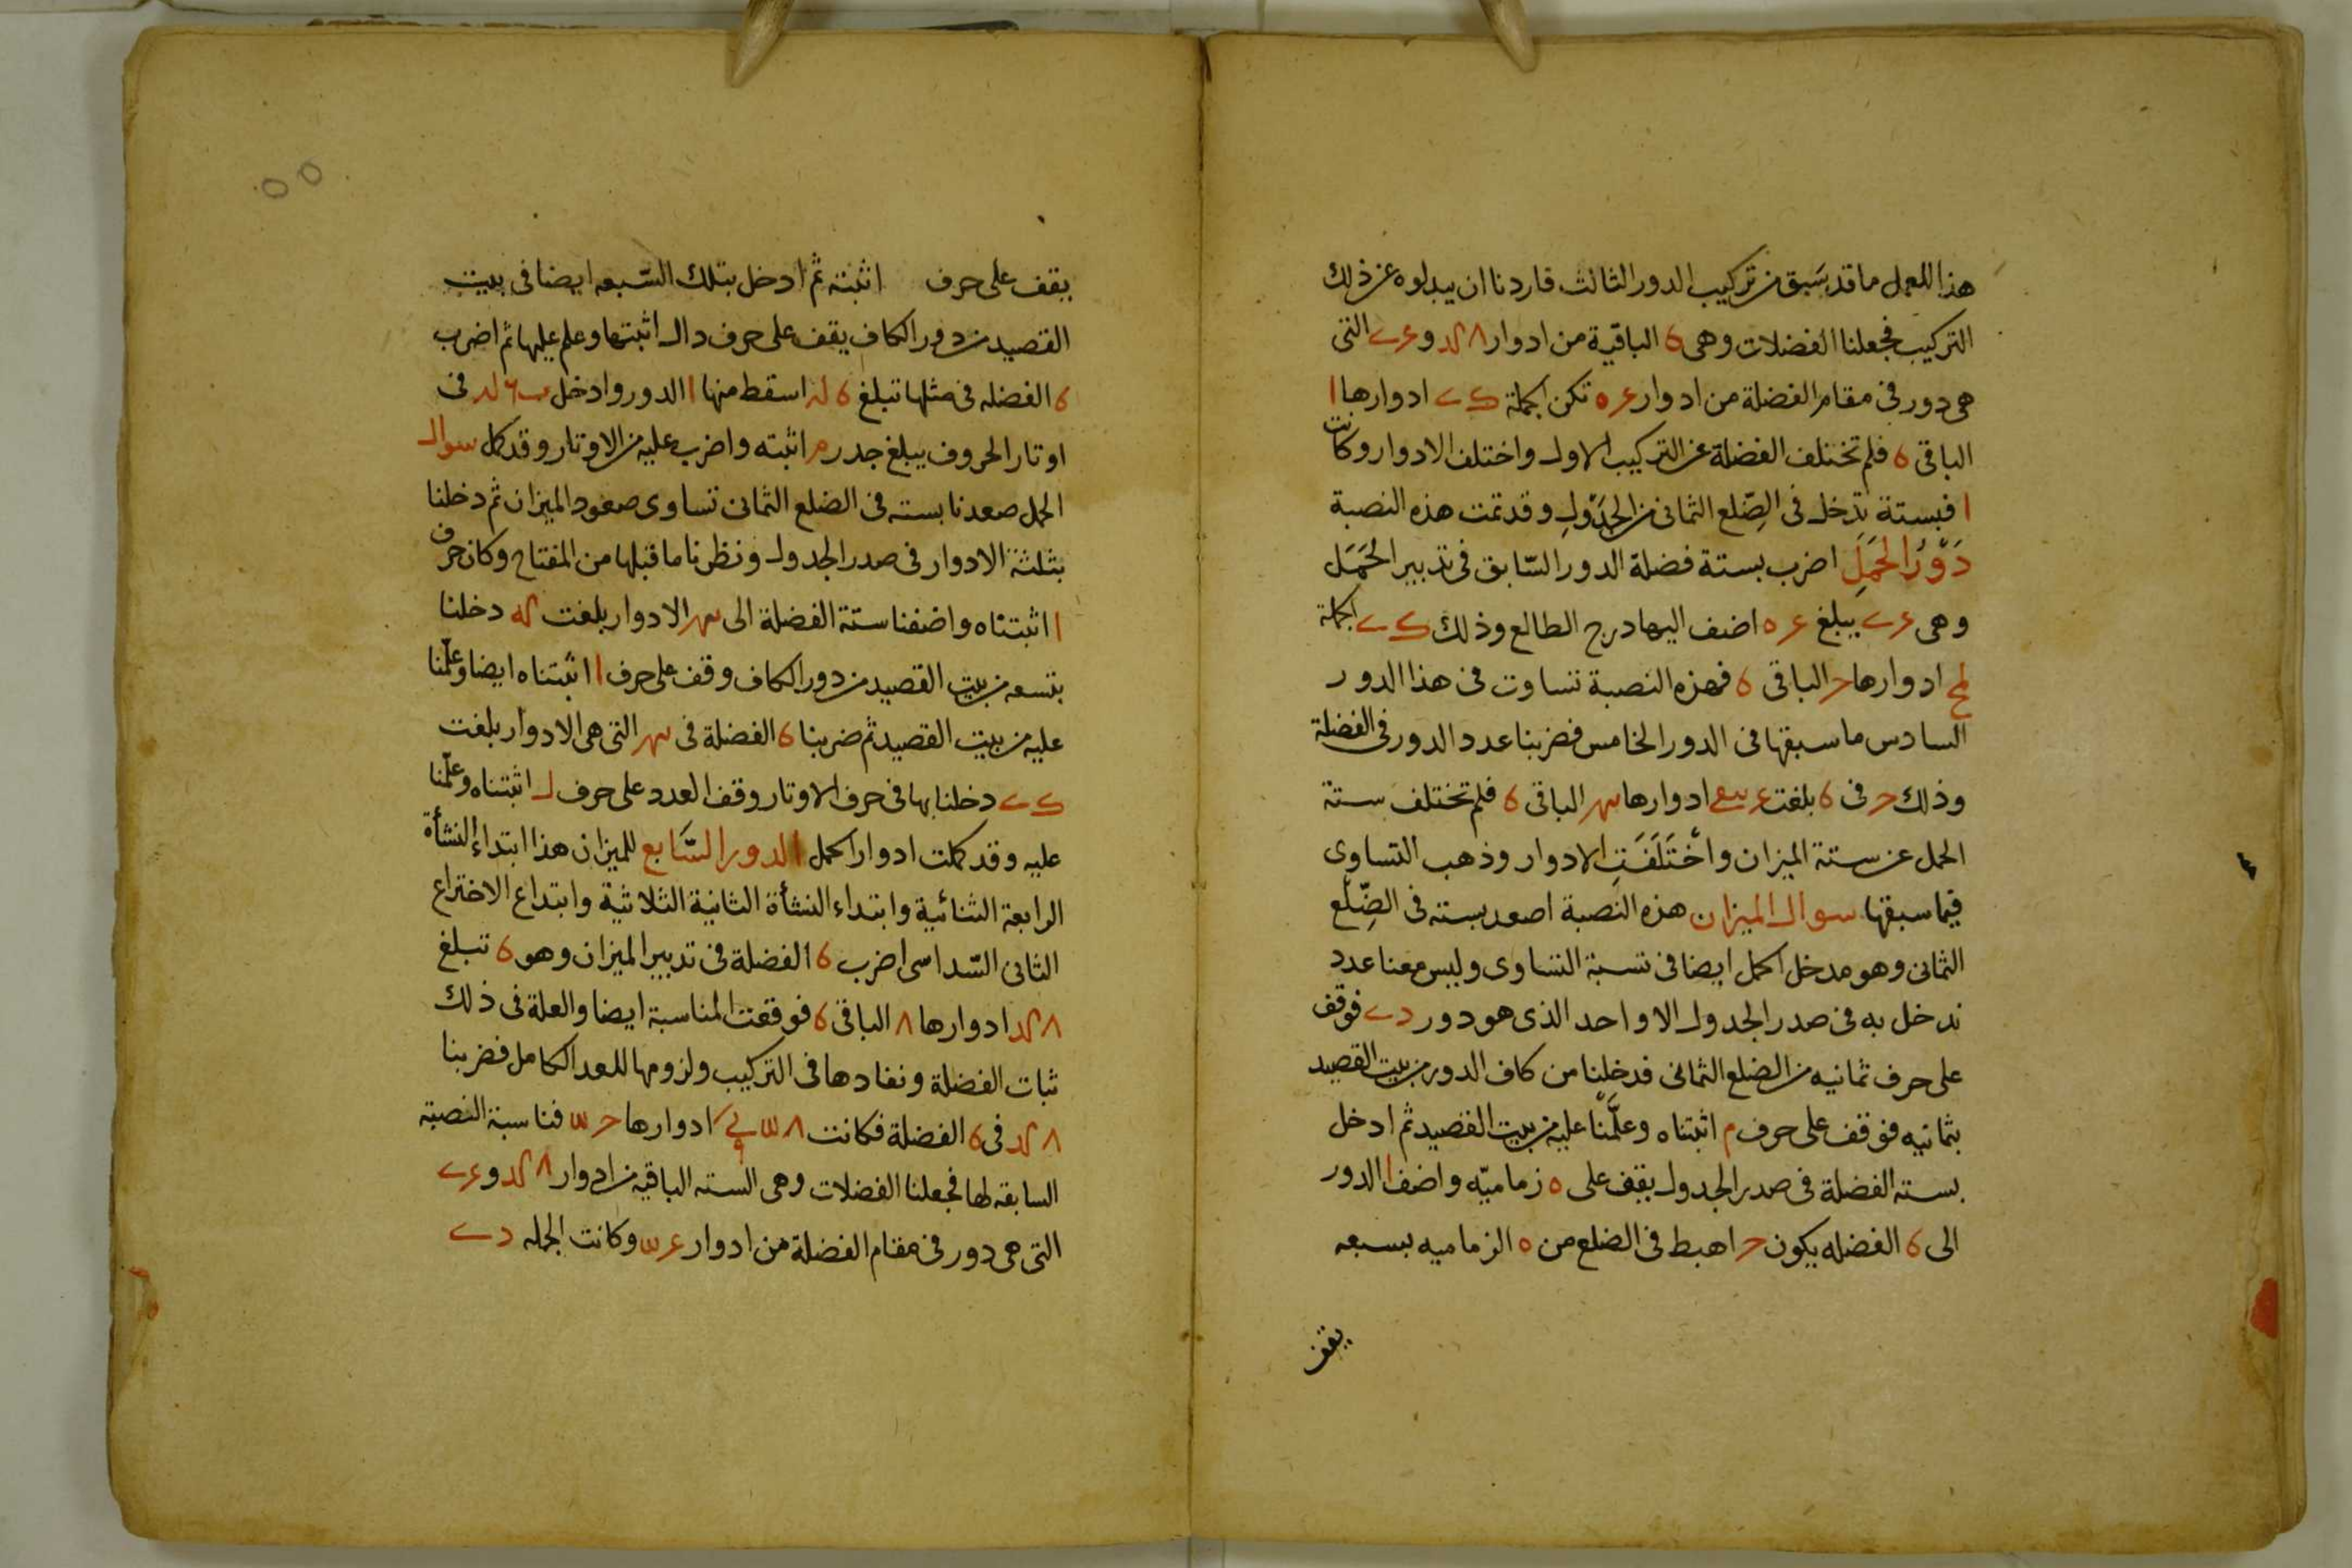 هذا العمل ما قد سَبق من تركيب الدور الثالث فاردنا ان يبدلوه عن ذلك
التركيب فجعلنا الفضلات وهى 6 الباقية من ادوار و التى
هى دور فى مقام الفضلة من ادوار تكن الجملة ادوارها ا
الباقى 6 فلم تختلف الفضلة عن التركيب الاول واختلف الادوار وكانت
ا فبستة تدخل فى الضِّلع الثمانى من الجَدْولِ وقد تمت هذه النصبة
دَوْرُ الحَمَلِ اضرب بستة فضلة الدور السّابق فى تدبير الحَمَل
وهى يبلغ اضف اليها درج الطالع وذلك الجملة
ادوارها ح الباقى 6 فهذه النصبة تساوت فى هذا الدور
السادس ما سبقها فى الدور الخامس فضربنا عدد الدور فى الفضلة
وذلك ح فى 6 بلغت ادوارها الباقى 6 فلم تختلف ستة
الحمل عن ستة الميزان واخْتَلَفَتِ الادوار وذهب التساوى
فيما سبقها سوال الميزان هذه النصبة اصعد بسته فى الضِّلْع
الثمانى وهو مدخل الحمل ايضا فى نسبة التساوى وليس معنا عدد
ندخل به فى صدر الجدول الا واحد الذى هو دور فوقف
على حرف ثمانيه من الضلع الثمانى فدخلنا من كاف الدور من بيت القصيد
بثمانيه فوقف على حرف م اثبتناه وعلَّمْنا عليه من بيت القصيد ثم ادخل
بسته الفضلة فى صدر الجدول يقف على ه زماميّه واضف ا الدور
الى 6 الفضله يكون ح اهبط فى الضلع من ه الزماميه بسبعه
يقف
يقف على حرف اثبته ثم ادخل بتلك السّبعه ايضا فى بيت
القصيد من دور الكاف يقف على حرف دال اثبتها وعلم عليها ثم اضرب
6 الفضله فى مثلها تبلغ اسقط منها ا الدور وادخل فى
اوتار الحروف يبلغ جدر م اثبته واضرب عليه من الاوتار وقد كمل سوال
الحمل صعدنا بسته فى الضلع الثمانى تساوى صعود الميزان ثم دخلنا
بثلثة الادوار فى صدر الجدول ونظرنا ما قبلها من المفتاح وكان حرف
ا اثبتناه واضفنا ستة الفضلة الى الادوار بلغت دخلنا
بتسعه من بيت القصيد من دور الكاف وقف على حرف ا اثبتناه ايضا وعلّمنا
عليه من بيت القصيد ثم ضربنا 6 الفضلة فى التى هى الادوار بلغت
دخلنا بها فى حرف الاوتار وقف العدد على حرف ل اثبتناه وعلّمنا
عليه وقد كملت ادوار الحمل الدور السَّابع للميزان هذا ابتداء النشأة
الرابعة الثنائية وابتداء النشأة الثانية الثلاثية وابتداع الاختراع
الثانى السّداسى اضرب 6 الفضلة فى تدبير الميزان وهو 6 تبلغ
ادوارها ٨ الباقى 6 فوقعت المناسبة ايضا والعلة فى ذلك
ثبات الفضلة ونفادها فى التركيب ولزومها للعدد الكامل فضربنا
فى 6 الفضلة فكانت ادوارها فناسبة النصبة
السابقه لها فجعلنا الفضلات وهى السته الباقيه من ادوار و
التى هى دور فى مقام الفضلة من ادوار وكانت الجمله